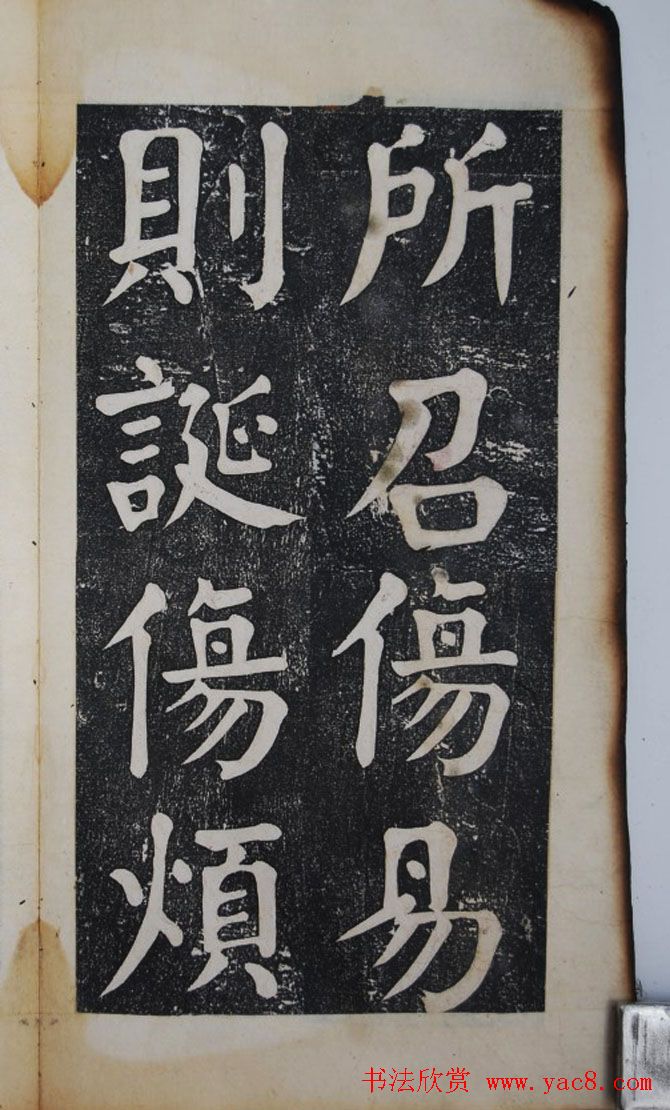 所召傷易
則誕傷煩
书法欣赏 www.yac8.com